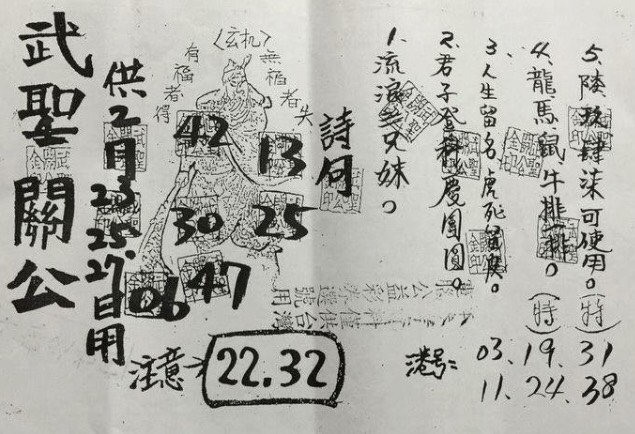 武聖關公
供2月23.25.27.日用
〈玄机〉
有福者得
無福者失
42
13
30
25
06
47
注意→
22.32
詩句
1.流浪三兄妹。
2.君子登科慶團圓。
3.人生留名虎死留皮。
4.龍馬鼠牛排一排。(特)
5.陸玖肆柒可使用。(特)
港号:
03、19、31
11、24、38